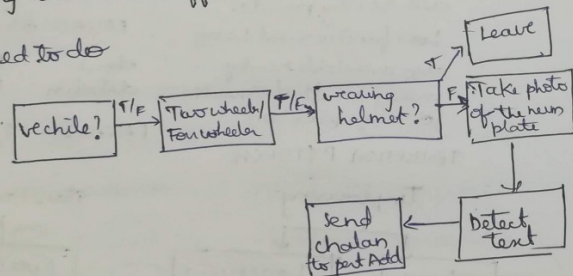 ed to do
vechile?
T/F
Two wheeler/
Four wheeler
T/F
wearing
helmet?
T
Leave
F
Take photo
of the num
plate
Detect
text
send
chalan
to pert Add